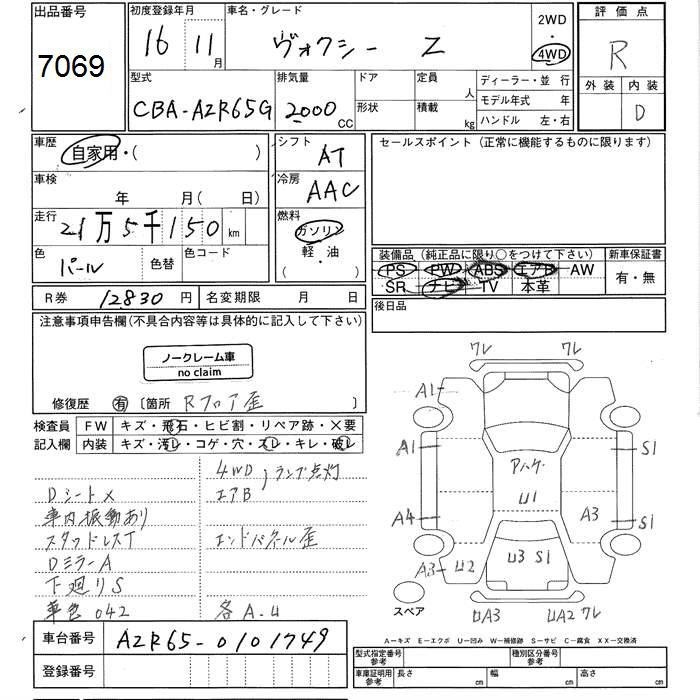 出品番号
7069
初度登録年月
16 11月
車名・グレード
ヴォクシー Z
2WD
・
4WD
評価点
R
外装 内装
D
型式
CBA-AZR65G
排気量
2000 CC
ドア
形状
定員 人
積載 kg
ディーラー・並 行
モデル年式 年
ハンドル 左・右
車歴
自家用・( )
シフト
AT
車検
年 月( 日)
冷房
AAC
走行
21万5千150 km
燃料
ガソリン
軽・油
色
パール
色替
色コード
R券 12830円
名変期限 月 日
セールスポイント(正常に機能するものに限ります)
装備品(純正品に限り○をつけて下さい)
PS PW ABS エアB AW
SR ナビ TV 本革
新車保証書
有・無
後日品
注意事項申告欄(不具合内容等は具体的に記入して下さい)
ノークレーム車
no claim
修復歴 有 〔箇所 Rフロア歪
検査員
記入欄
FW キズ・飛石・ヒビ割・リペア跡・X要
内装 キズ・汚レ・コゲ・穴・スレ・キレ・破レ
4WD
エアB
ランプ点灯
Dシート×
車内振動あり
スタッドレスT
エンドパネル歪
DミラーA
下廻りS
車色042
各A.U
車台番号 AZR65-0101749
登録番号
ワレ ワレ
A1
A1
A4
A3
U2
アハケ
U1
U3 S1
A3
S1
S1
スペア
UA3
UA2 ワレ
A-キズ E-エクボ U-凹み W-補修跡 S-サビ C-腐食 XX-交換済
型式指定番号
参考
種別区分番号
参考
車庫証明用
参考
長さ cm
幅 cm
高さ cm